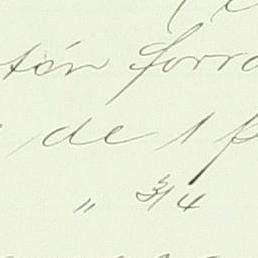 tón forro
de 1 p
" 3/4